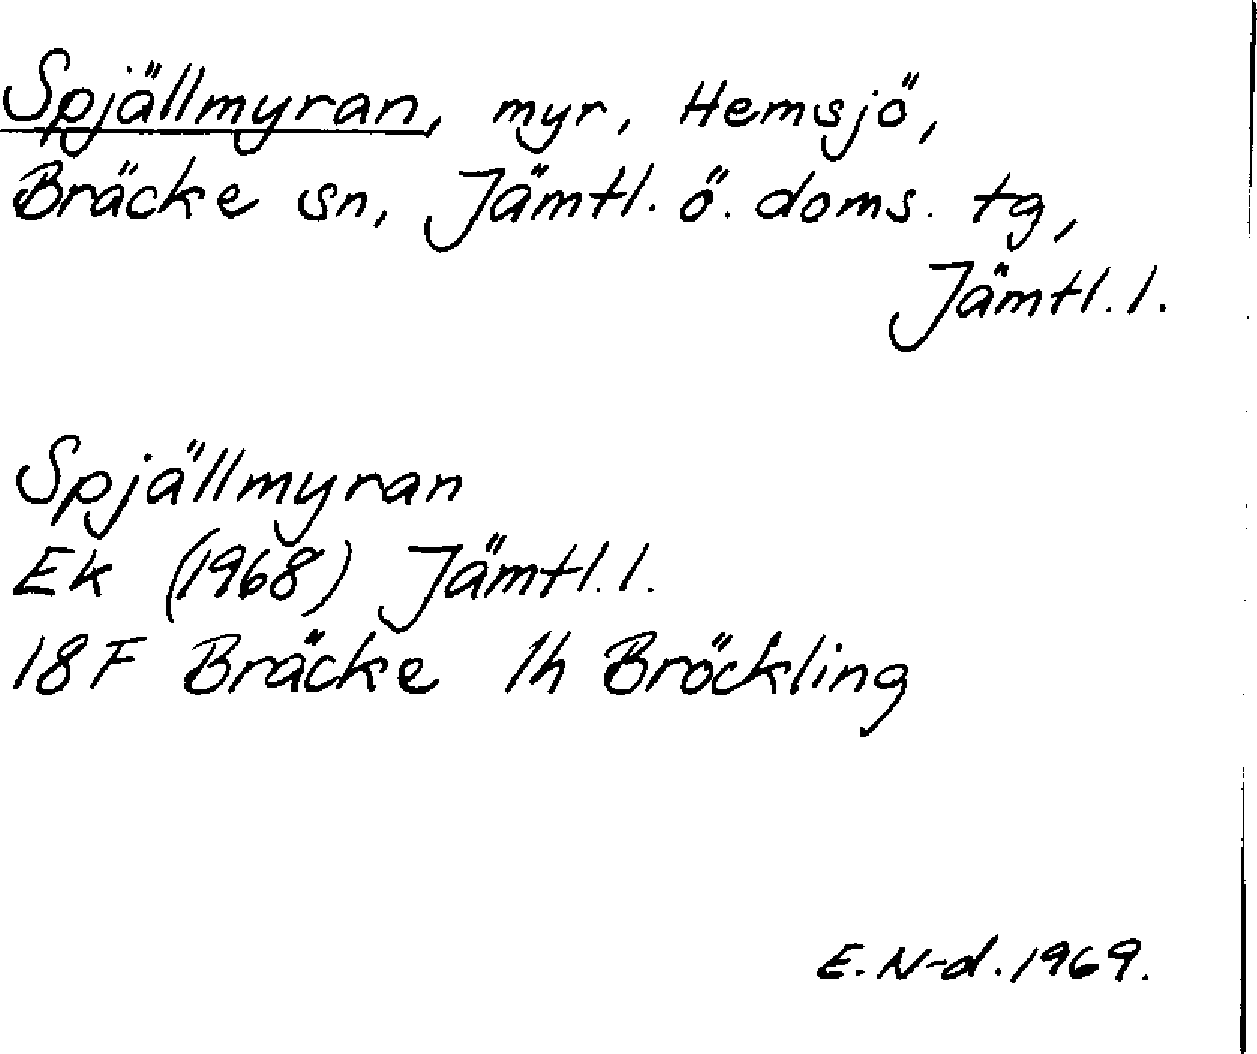 Spjällmyran, myr, Hemsjö,
Bräcke sn, Jämtl. ö. doms. tg,
Jämtl. l.
Spjällmyran
Ek (1968) Jämtl. l.
18F Bräcke 1h Bröckling
E. N-d. 1969.